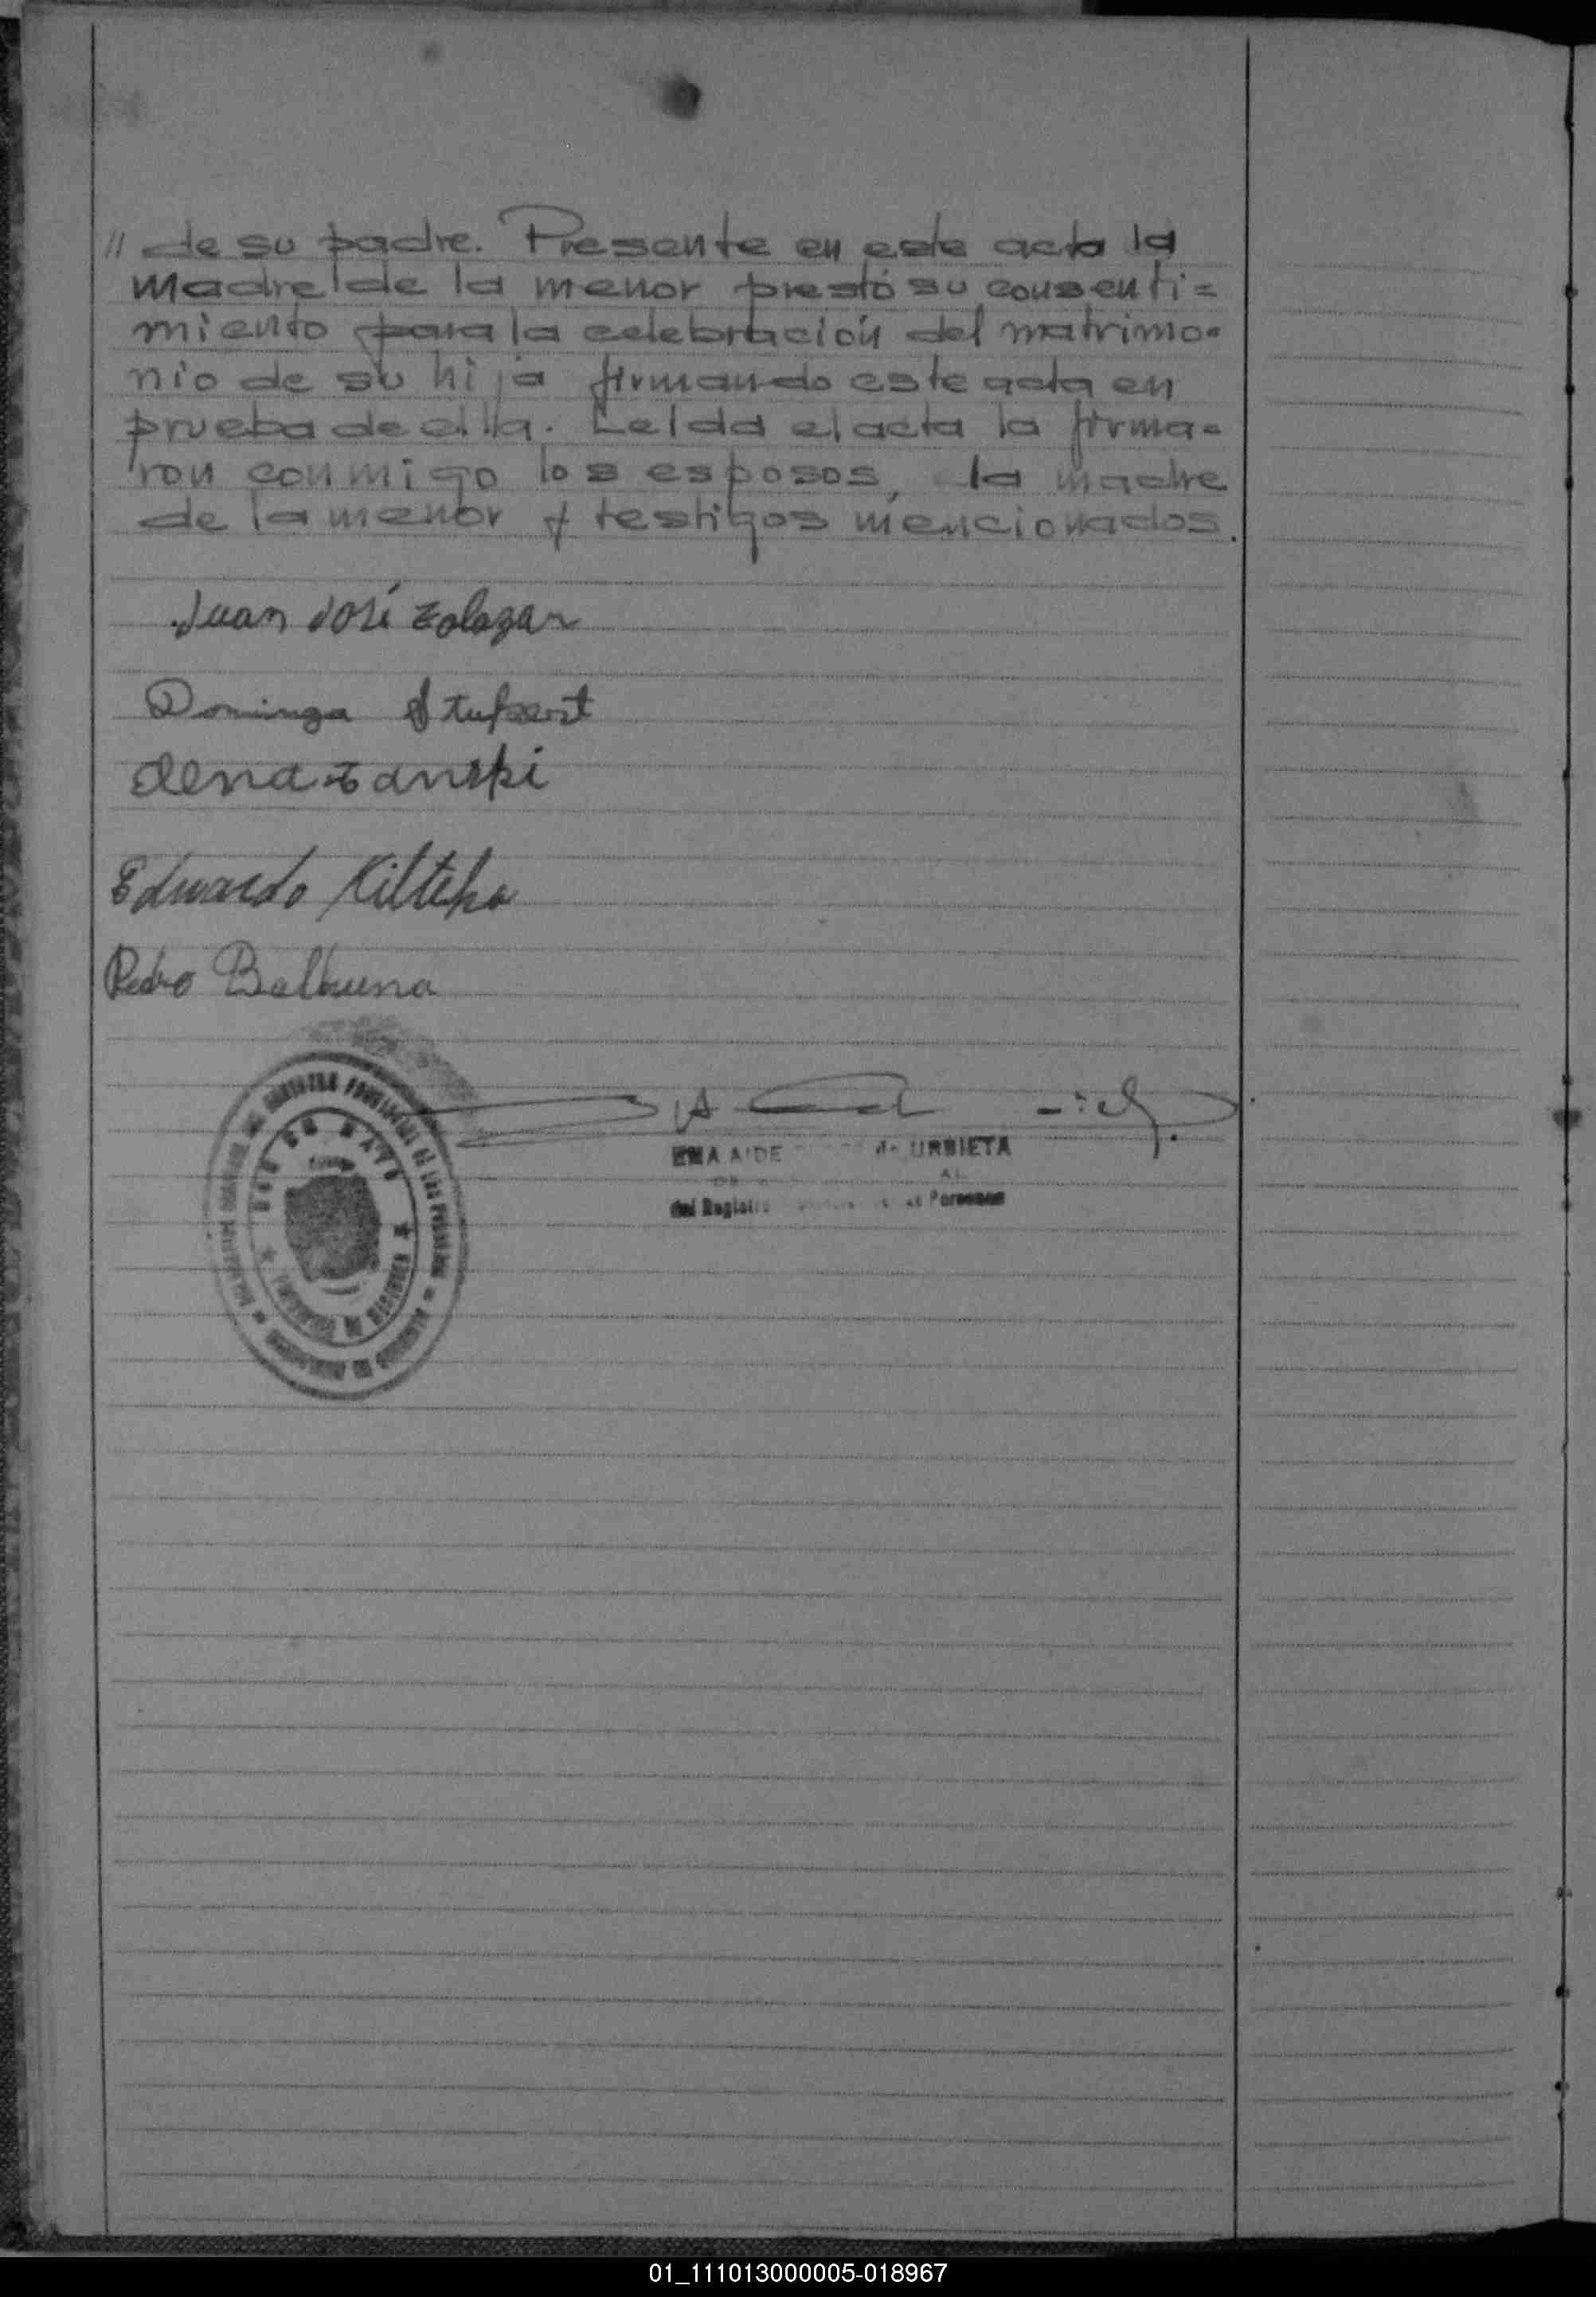 // de su padre. Presente en este acto la
madre de la menor prestó su consenti=
miento para la celebración del matrimo=
nio de su hija firmando este acta en
prueba de ella. Leida el acta la firma=
ron conmigo los esposos, la madre
de la menor y testigos mencionados.
Juan José Zalazar
Dominga
Elena Zanski
Eduardo
Pedro Balbuena
EMA AIDE de URBIETA
del Registro Personas
DOS DE MAYO
01_111013000005-018967